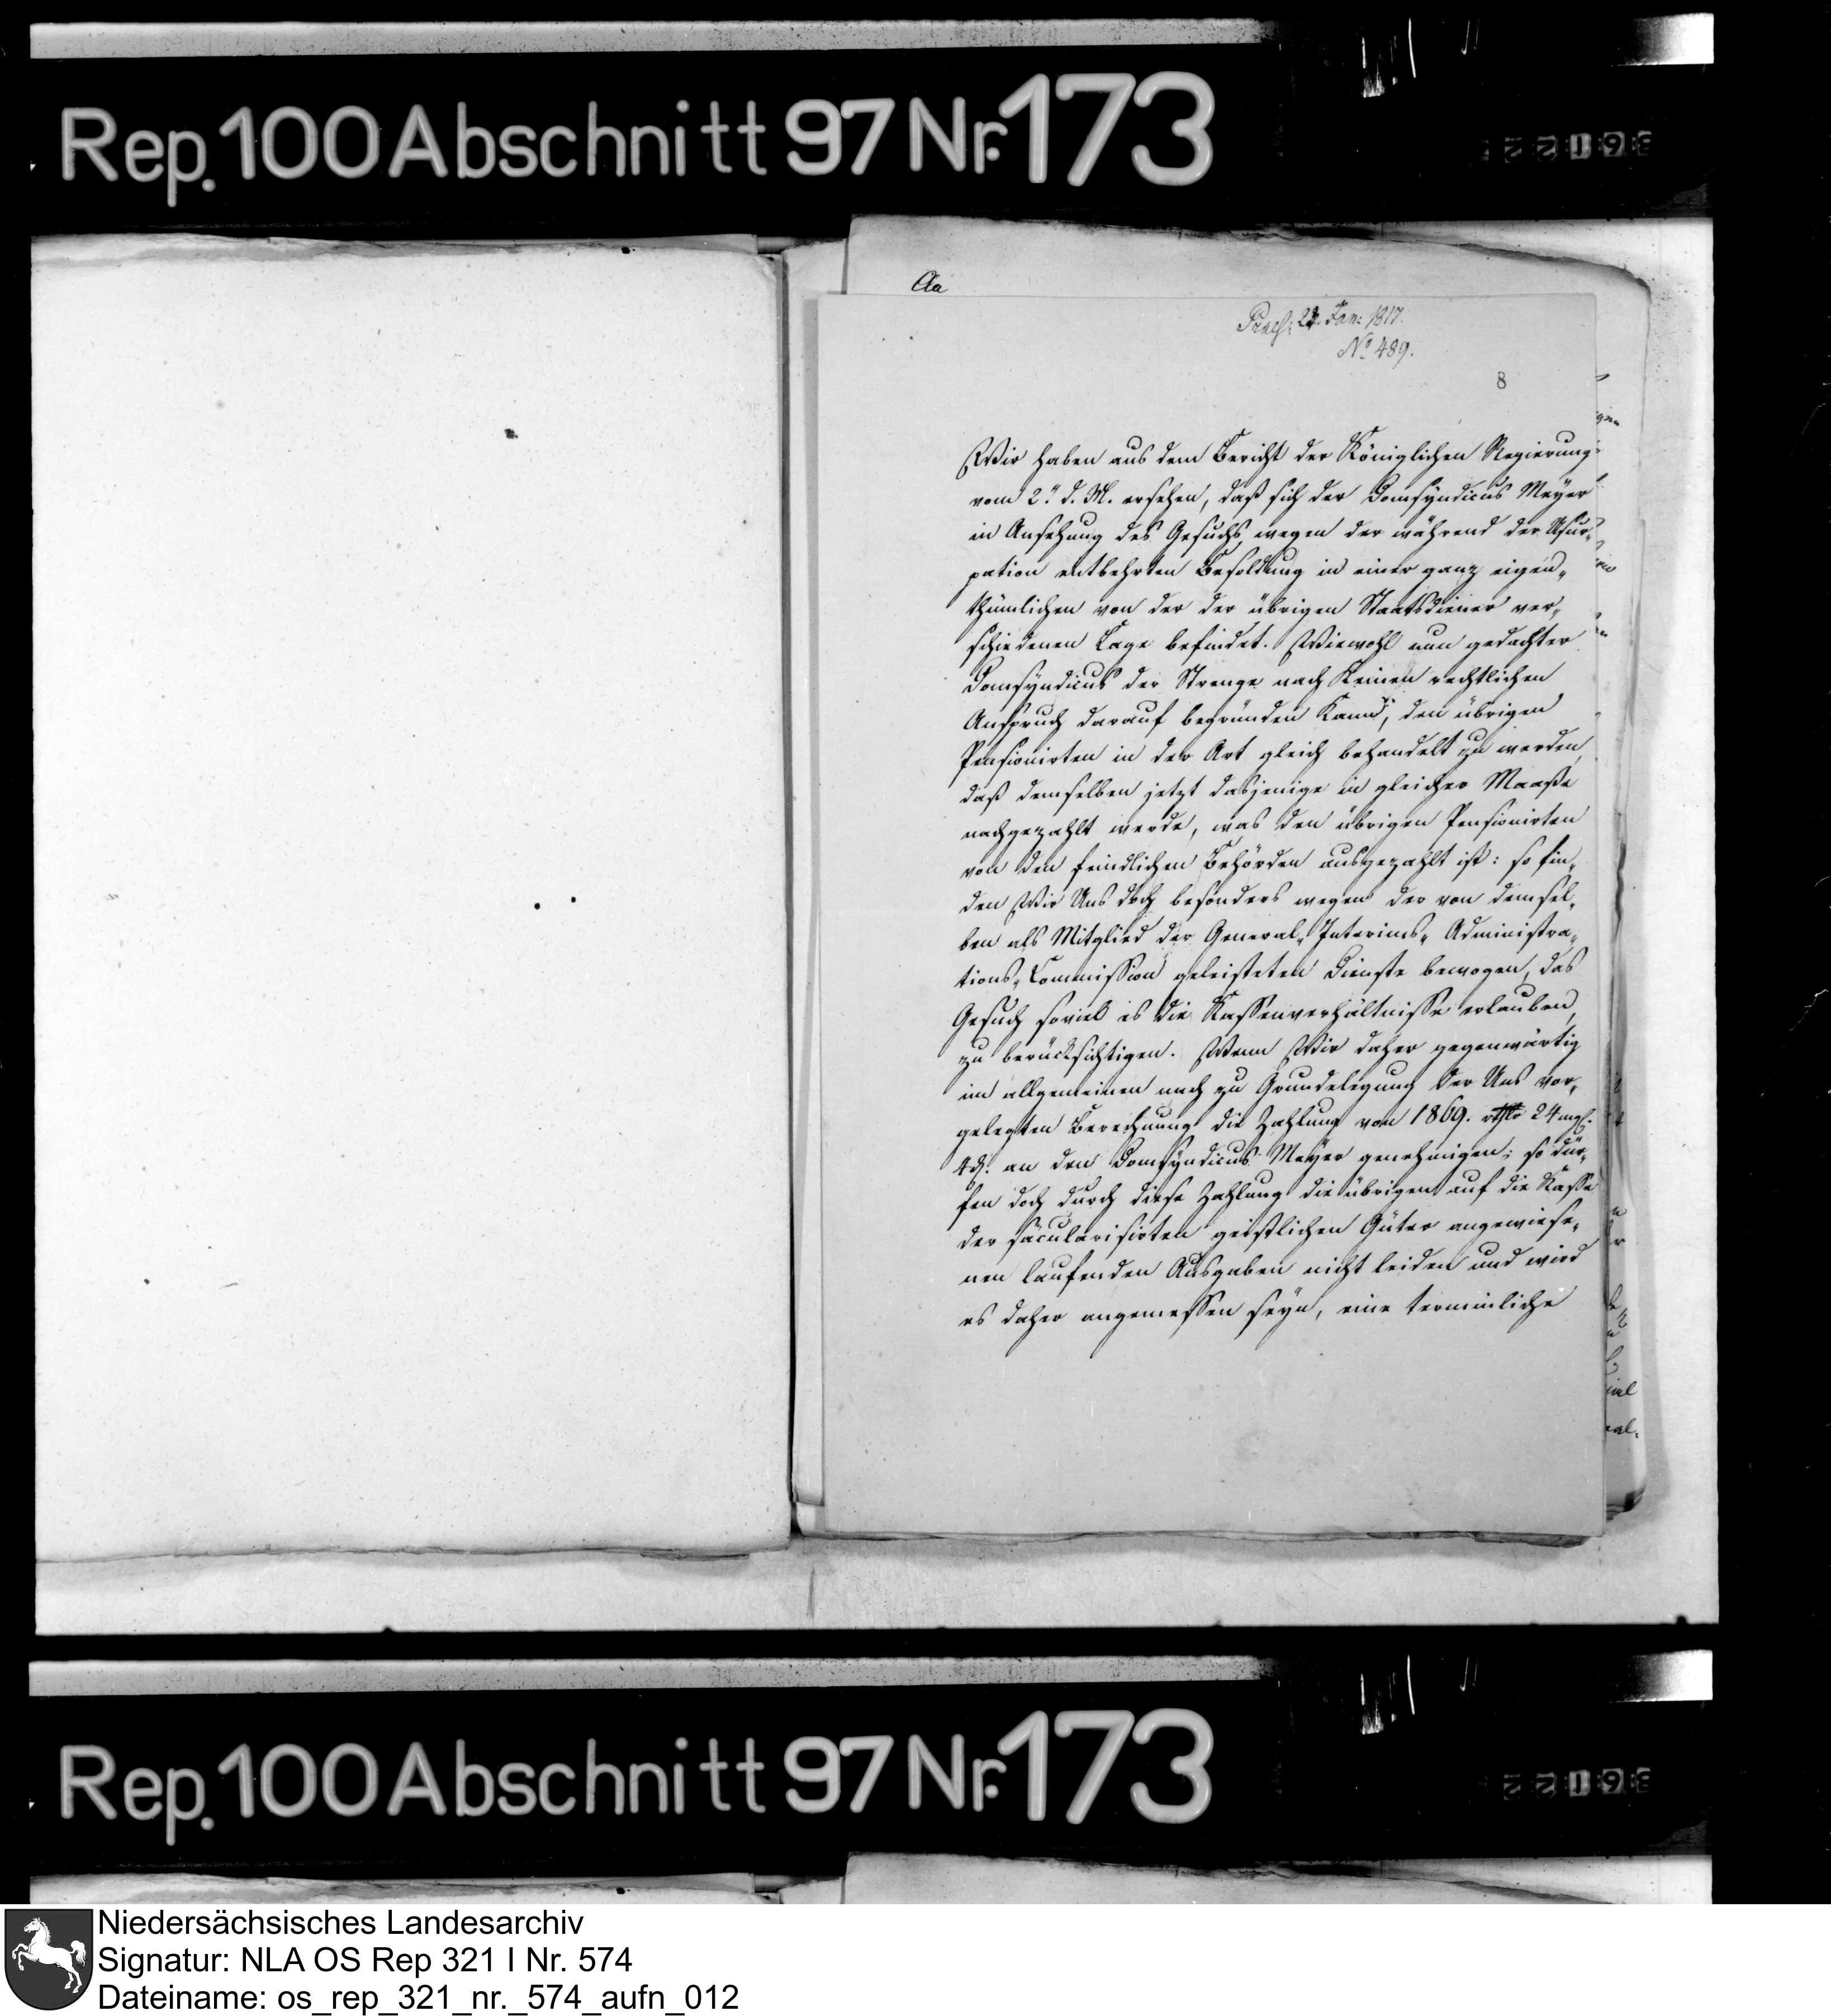 Rep. 100 Abschnitt 97 Nr. 173
Aa
Praes: 22. Jan: 1817.
No 489.
8
Wir haben aus dem Bericht der Königlichen Regierung
vom 2n d. M. ersehen, daß sich der Domsyndicus Meyer
in Ansehung des Gesuchs wegen der während der Usur-
pation entbehrten Besoldung in einer ganz eigen-
thümlichen von der der übrigen Staatsdiener ver-
schiedenen Lage befindet. Wiewohl nun gedachter
Domsyndicus der Strenge nach keinen rechtlichen
Anspruch darauf begründen kann, den übrigen
Pensionirten in der Art gleich behandelt zu werden,
daß demselben jetzt dasjenige in gleicher Maaße
nachgezahlt werde, was den übrigen Pensionirten
von den feindlichen Behörden ausgezahlt ist: so fin-
den Wir Uns doch besonders wegen der von demsel-
ben als Mitglied der General-Interims-Administra-
tions-Commission geleisteten Dienste bewogen, das
Gesuch soviel es die Kassenverhältnisse erlauben,
zu berücksichtigen. Wenn Wir daher gegenwärtig
im allgemeinen nach zu Grundelegung der Uns vor-
gelegten Berechnung die Zahlung von 1869. rthlr 24 mgl.
4 d. an den Domsyndicus Meyer genehmigen; so dür-
fen doch durch diese Zahlung die übrigen auf die Kasse
der säcularisirten geistlichen Güter angewiese-
nen laufenden Ausgaben nicht leiden und wird
es daher angemessen seyn, eine terminliche
Rep. 100 Abschnitt 97 Nr. 173
Niedersächsisches Landesarchiv
Signatur: NLA OS Rep 321 I Nr. 574
Dateiname: os_rep_321_nr._574_aufn_012